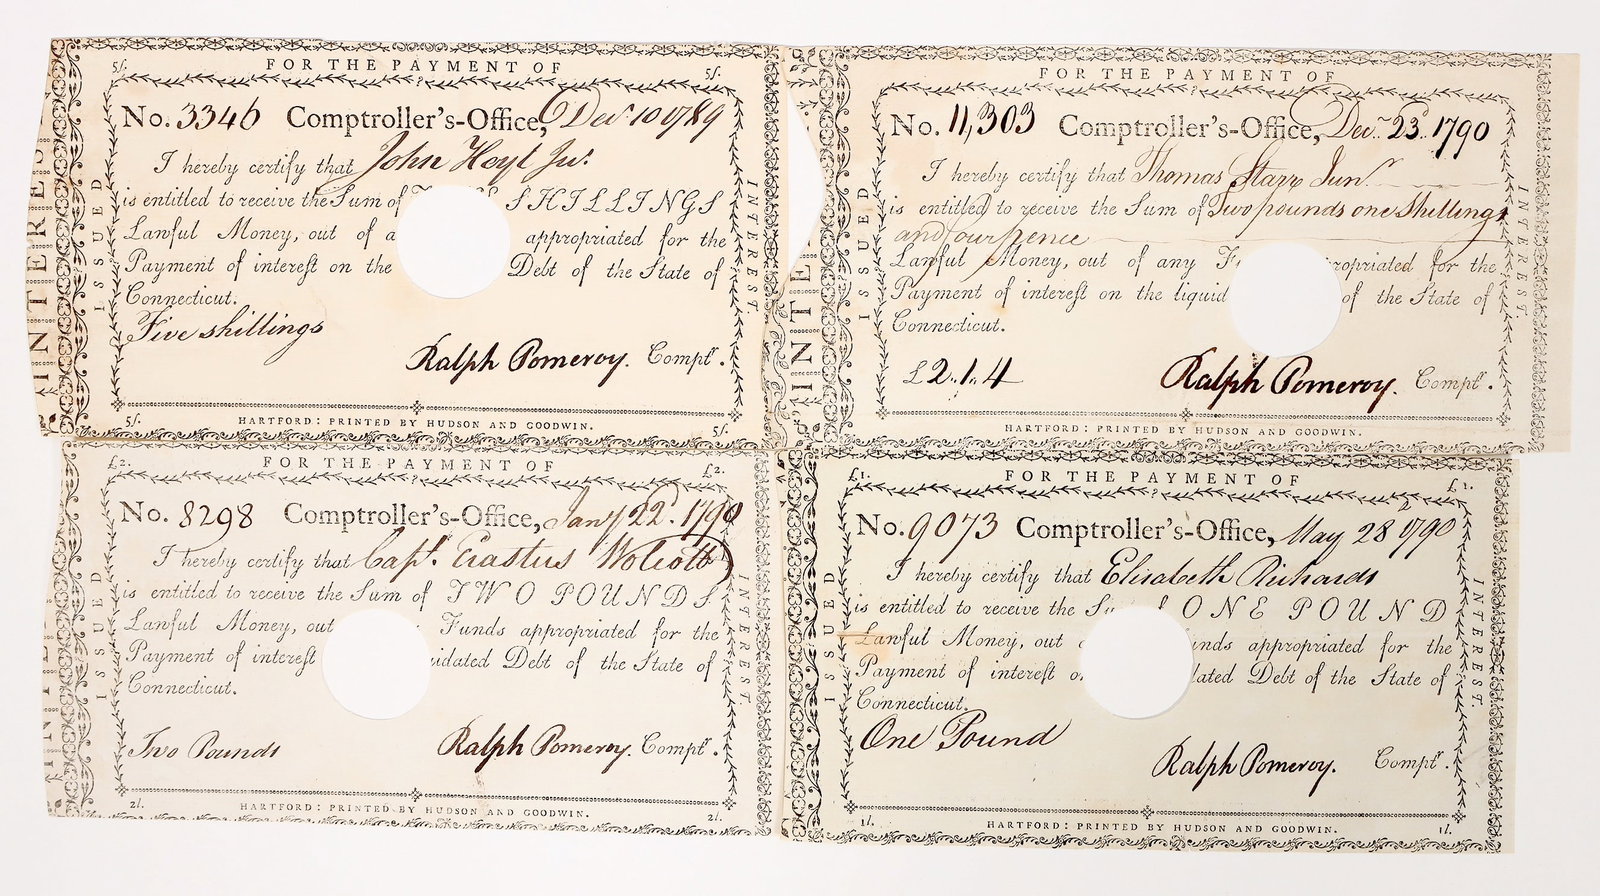 5/. FOR THE PAYMENT OF 5/.
No. 3346 Comptroller's-Office, Decr 10 1789
I hereby certify that John Hoyt Junr.
is entitled to receive the Sum of SHILLINGS
Lawful Money, out of a appropriated for the
Payment of interest on the Debt of the State of
Connecticut.
Five shillings
Ralph Pomeroy. Comptr.
5/. HARTFORD: PRINTED BY HUDSON AND GOODWIN. 5/.
ISSUED
INTEREST.
INTERES
FOR THE PAYMENT OF
No. 11,303 Comptroller's-Office, Decr. 23d. 1790
I hereby certify that Thomas Starr Junr.
is entitled to receive the Sum of Two pounds one Shillings
and four pence
Lawful Money, out of any F ropriated for the
Payment of interest on the liquid of the State of
Connecticut.
£2..1..4 Ralph Pomeroy. Comptr.
HARTFORD: PRINTED BY HUDSON AND GOODWIN.
ISSUED
INTEREST.
INTE
£2. FOR THE PAYMENT OF £2.
No. 8298 Comptroller's-Office, Jany 22d. 1790
I hereby certify that Capt. Erastus Wolcott
is entitled to receive the Sum of TWO POUNDS
Lawful Money, out Funds appropriated for the
Payment of interest uidated Debt of the State of
Connecticut.
Two Pounds Ralph Pomeroy. Comptr.
2l. HARTFORD: PRINTED BY HUDSON AND GOODWIN. 2l.
ISSUED
INTEREST.
£1. FOR THE PAYMENT OF £1.
No. 9073 Comptroller's-Office, May 28 1790
I hereby certify that Elisabeth Richards
is entitled to receive the Su f ONE POUND
Lawful Money, out unds appropriated for the
Payment of interest o dated Debt of the State of
Connecticut.
One Pound
Ralph Pomeroy. Comptr.
1l. HARTFORD: PRINTED BY HUDSON AND GOODWIN. 1l.
ISSUED
INTEREST.